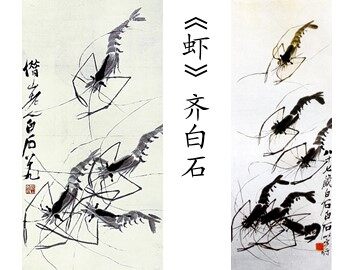 借山老人白石
《虾》齐白石
八十七歲白石白石